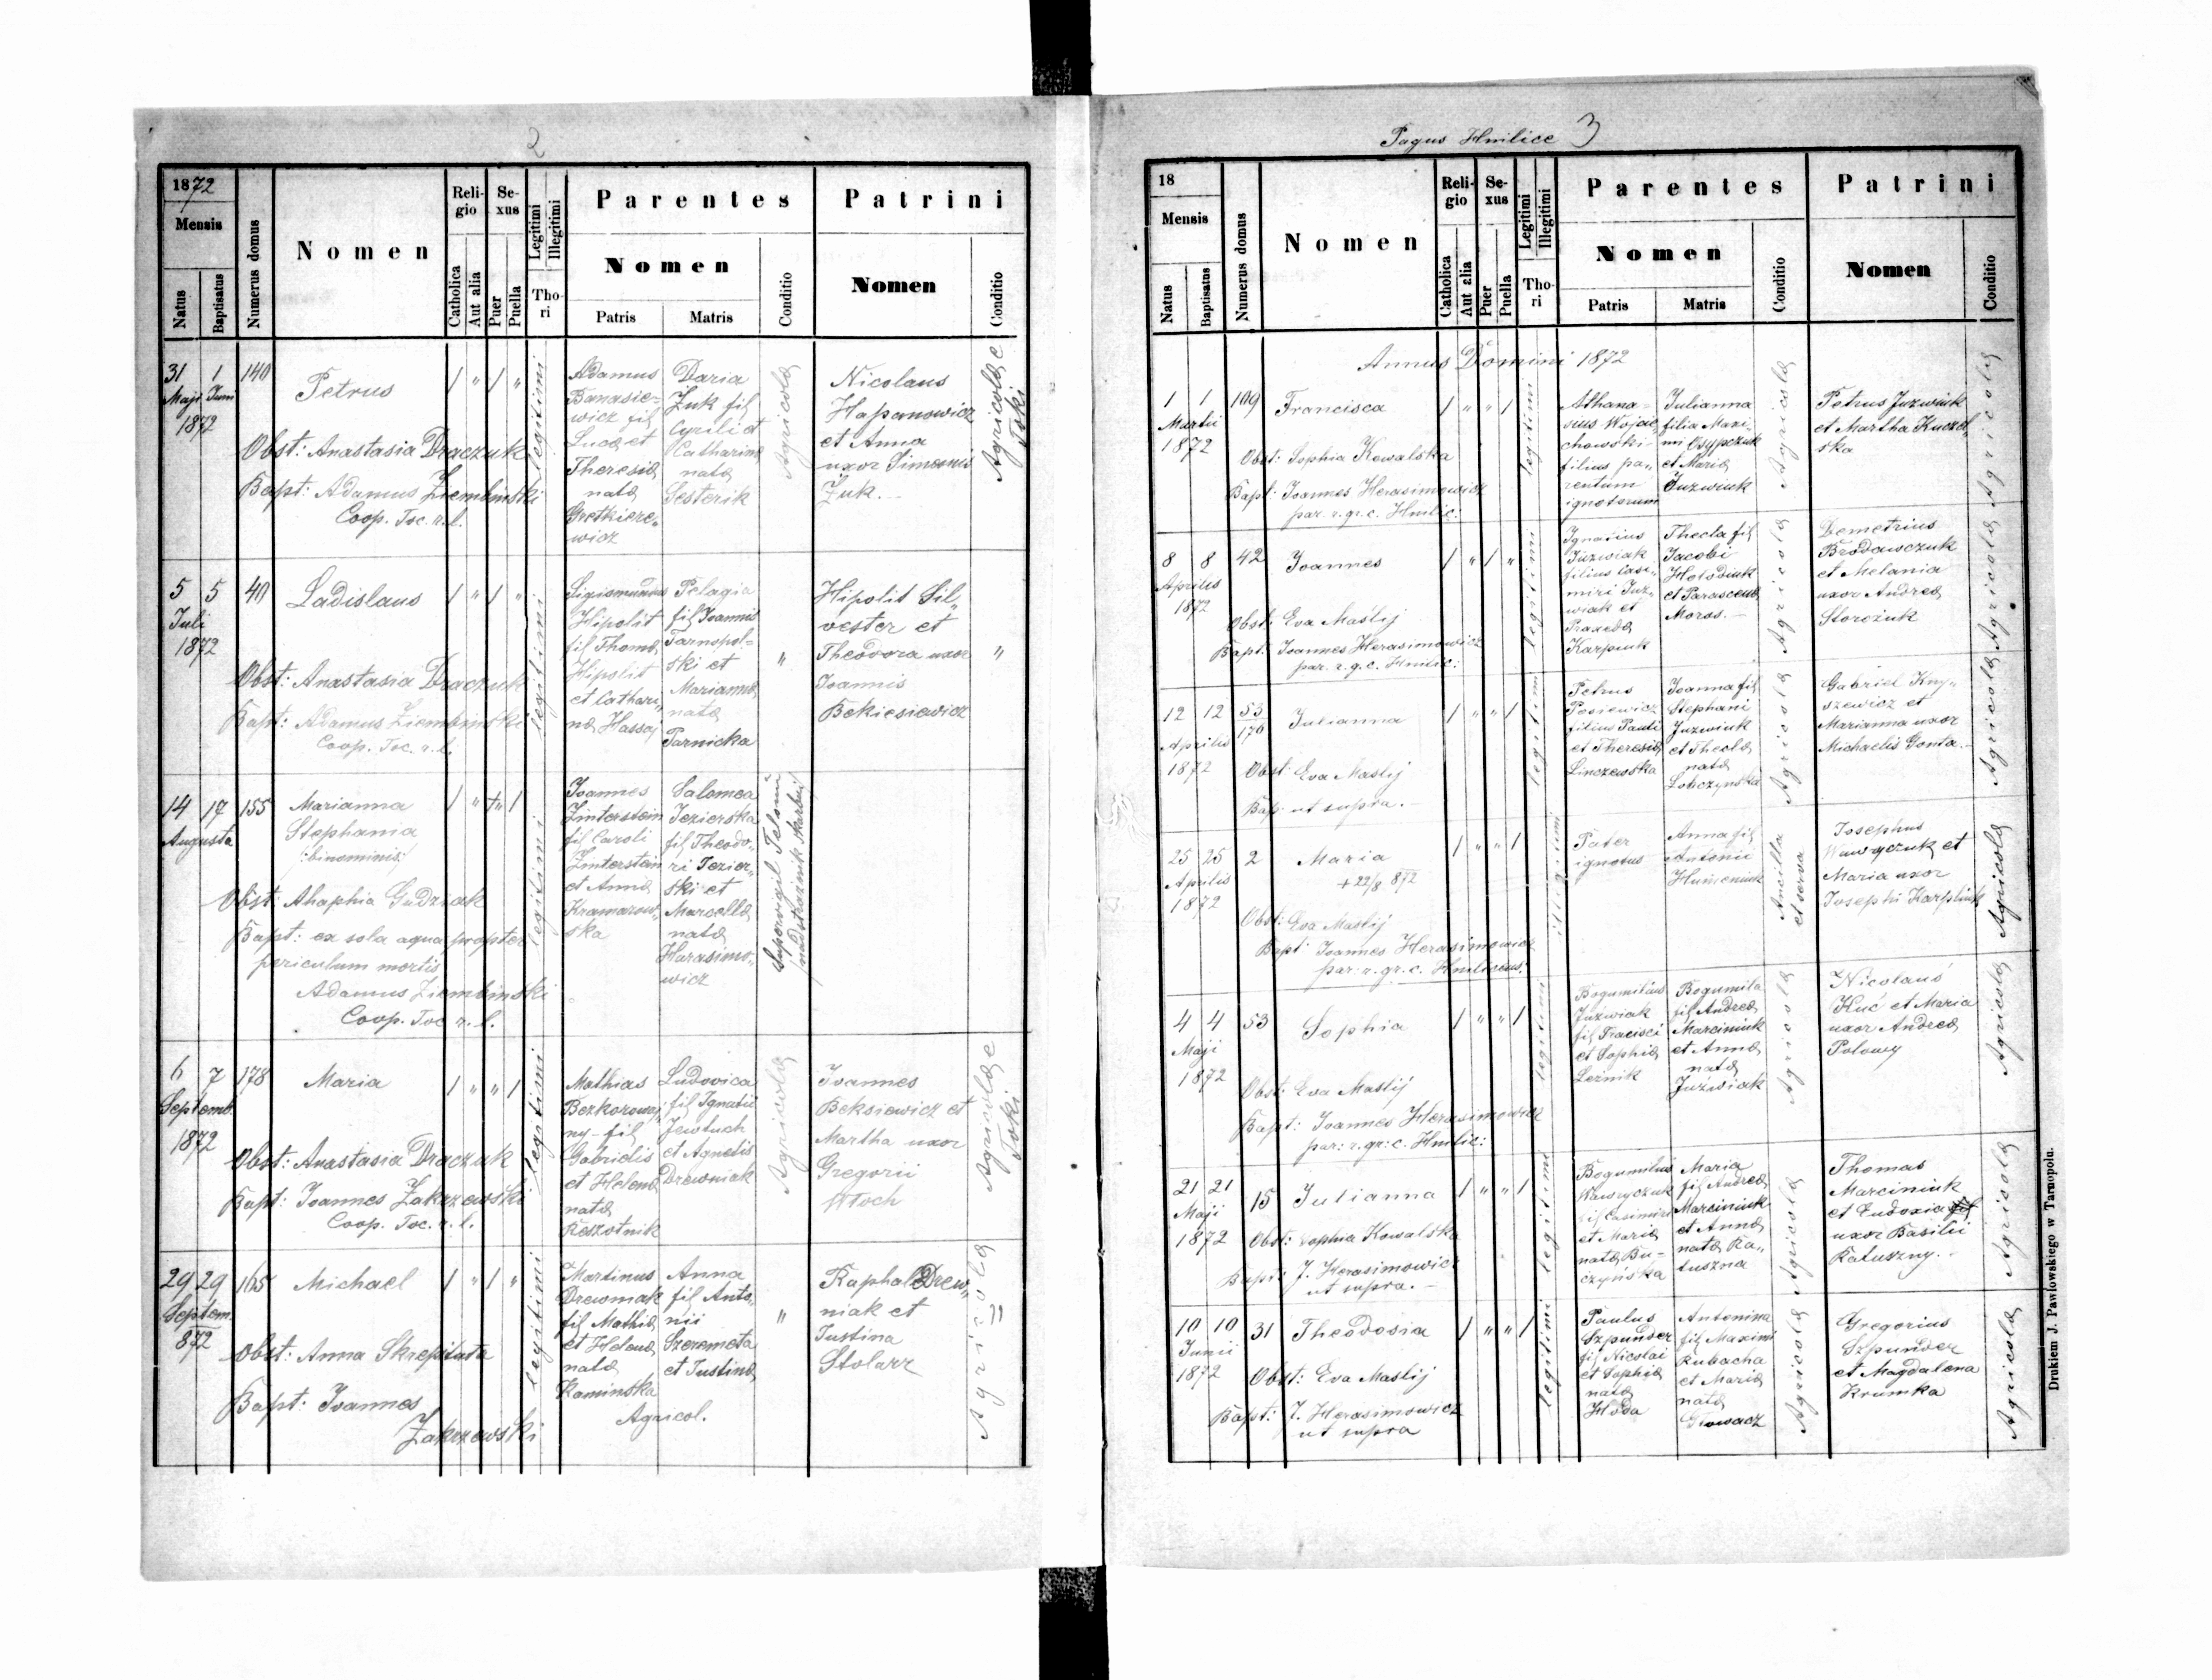 2
1872
Mensis
Natus
Baptisatus
Numerus domus
Nomen
Reli-
gio
Catholica
Aut alia
Se-
xus
Puer
Puella
Legitimi
Illegitimi
Tho-
ri
Parentes
Nomen
Patris
Matris
Conditio
Patrini
Nomen
Conditio
31 1 140
Maji Juni
1872
Petrus
Obst: Anastasia Draczuk
Bapt: Adamus Ziembinski
Coop. Toc. r. l.
legitimi
Adamus
Banasie=
wicz fil
Lucæ et
Theresiæ
natæ
Gretkiere„
wicz
Daria
Zuk fil
Cyrili et
Catharinæ
natæ
Sesterik
Agricolæ
Nicolaus
Hapanowicz
et Anna
uxor Simeonis
Zuk.
Agricolæ e
Toki
5 5 40
Juli
1872
Ladislaus
Obst: Anastasia Draczuk
Bapt: Adamus Ziembinski
Coop. Toc. r. l.
legitimi
Sigismundus
Hipolit
fil Thomæ
Hipolit
et Cathari„
næ Hassaj
Pelagia
fil Joannis
Tarnopol=
ski et
Mariannæ
natæ
Parnicka
"
Hipolit Sil„
vester et
Theodora uxor
Joannis
Bekiesiewicz
"
14 17 155
Augusta
Marianna
Stephania
/:binominis:/
Obst: Ahaphia Gudziak
Bapt: ex sola aqua propter
periculum mortis
Adamus Ziembinski
Coop. Toc r. l.
legitimi
Joannes
Zinterstein
fil Caroli
Zinterstein
et Annæ
Kramarow„
ska
Salomea
Jezierska
fil Theodo„
ri Jezier„
ski et
Marcellæ
natæ
Harasimo„
wicz
6 7 178
Septemb.
1872
Maria
Obst: Anastasia Draczuk
Bapt: Joannes Zakrzewski
Coop. Toc. r. l.
legitimi
Mathias
Bezkorowaj„
ny - fil
Gabrielis
et Helenæ
natæ
Reszotnik
Ludovica
fil Ignatii
Jewtuch
et Agnetis
Drewniak
Agricolæ
Joannes
Beksiewicz et
Martha uxor
Gregorii
Wloch
Agricolæ e
Toki
29 29 165
Septem.
872
Michael
Obst: Anna Skrepitata
Bapt: Joannes
Zakrzewski
legitimi
Martinus
Drewniak
fil Mathiæ
et Helenæ
natæ
Kaminska
Anna
fil Anto„
nii
Szeremeta
et Justinæ
Agricol.
"
Raphal Drew„
niak et
Justina
Stolarz
Agricolæ
Pagus Hnilice 3
18
Mensis
Natus
Baptisatus
Numerus domus
Nomen
Reli-
gio
Catholica
Aut alia
Se-
xus
Puer
Puella
Legitimi
Illegitimi
Tho-
ri
Parentes
Nomen
Patris
Matris
Conditio
Patrini
Nomen
Conditio
Annus Domini 1872
1 1 109
Martii
1872
Francisca
Obst: Sophia Kowalska
Bapt: Joannes Herasimowicz
par. r. gr. c. Hnilic:
legitimi
Athana=
sius Wojcie
chowski -
filius pa„
rentum
ignotorum
Julianna
filia Maxi=
mi Osypczuk
et Mariæ
Juzwiuk
Agricolæ
Petrus Juzwiuk
et Martha Kuczel„
ska
Agricolæ
8 8 42
Aprilis
1872
Joannes
Obst: Eva Maslij
Bapt: Joannes Herasimowicz
par. r. g. c. Hnilic:
legitimi
Ignatius
Juzwiak
filius Casi„
miri Juz„
wiak et
Praxedæ
Karpiuk
Thecla fil
Jacobi
Holodiuk
et Parascevæ
Moros. -
Agricolæ
Demetrius
Brodawczuk
et Melania
uxor Andreæ
Storożuk
Agricolæ
12 12 53
170
Aprilis
1872
Julianna
Obst: Eva Maslij
Bap: ut supra. -
legitimi
Petrus
Posiewicz
filius Pauli
et Theresiæ
Linczewska
Joanna fil
Stephani
Juzwiuk
et Theclæ
natæ
Lobczynska
Agricolæ
Gabriel Kny„
szewicz et
Marianna uxor
Michaelis Gonta. -
Agricolæ
25 25 2
Aprilis
1872
Maria
+ 22/8 872
Obst: Eva Maslij
Bapt: Joannes Herasimowicz
par. r. gr. c. Hnilicens:
illegitimi
Pater
ignotus
Anna fil
Antonii
Humeniuk
Ancilla
et serva
Josephus
Wawryczuk et
Maria uxor
Josephi Karpliuk
Agricolæ
4 4 53
Maji
1872
Sophia
Obst: Eva Maslij
Bapt: Joannes Herasimowicz
par: r. gr: c. Hnilic:
legitimi
Bogumilius
Juzwiak
fil Fracisci
et Sophiæ
Leżnik
Bogumila
fil Andreæ
Marciniuk
et Annæ
natæ
Juzwiak
Agricolæ
Nicolaus
Huć et Maria
uxor Andreæ
Polowy
Agricolæ
21 21 15
Maji
1872
Julianna
Obst: Sophia Kowalska
Bapt: J. Herasimowicz
ut supra. -
legitimi
Bogumilus
Wawryczuk
fil Casimiri
et Mariæ
natæ Bu=
czyńska
Maria
fil Andreæ
Marciniuk
et Annæ
natæ Ka„
tuszna
Agricolæ
Thomas
Marciniuk
et Eudoxia
uxor Basilii
Katuszny. -
Agricolæ
10 10 31
Junii
1872
Theodosia
Obst: Eva Maslij
Bapt: J. Herasimowicz
ut supra
legitimi
Paulus
Szpunder
fil Nicolai
et Sophiæ
natæ
Hoda
Antonina
fil Maximi
Rubacha
et Mariæ
natæ
Glowacz
Agricolæ
Gregorius
Szpunder
et Magdalena
Krumka
Agricolæ
Drukiem J. Pawłowskiego w Tarnopolu.